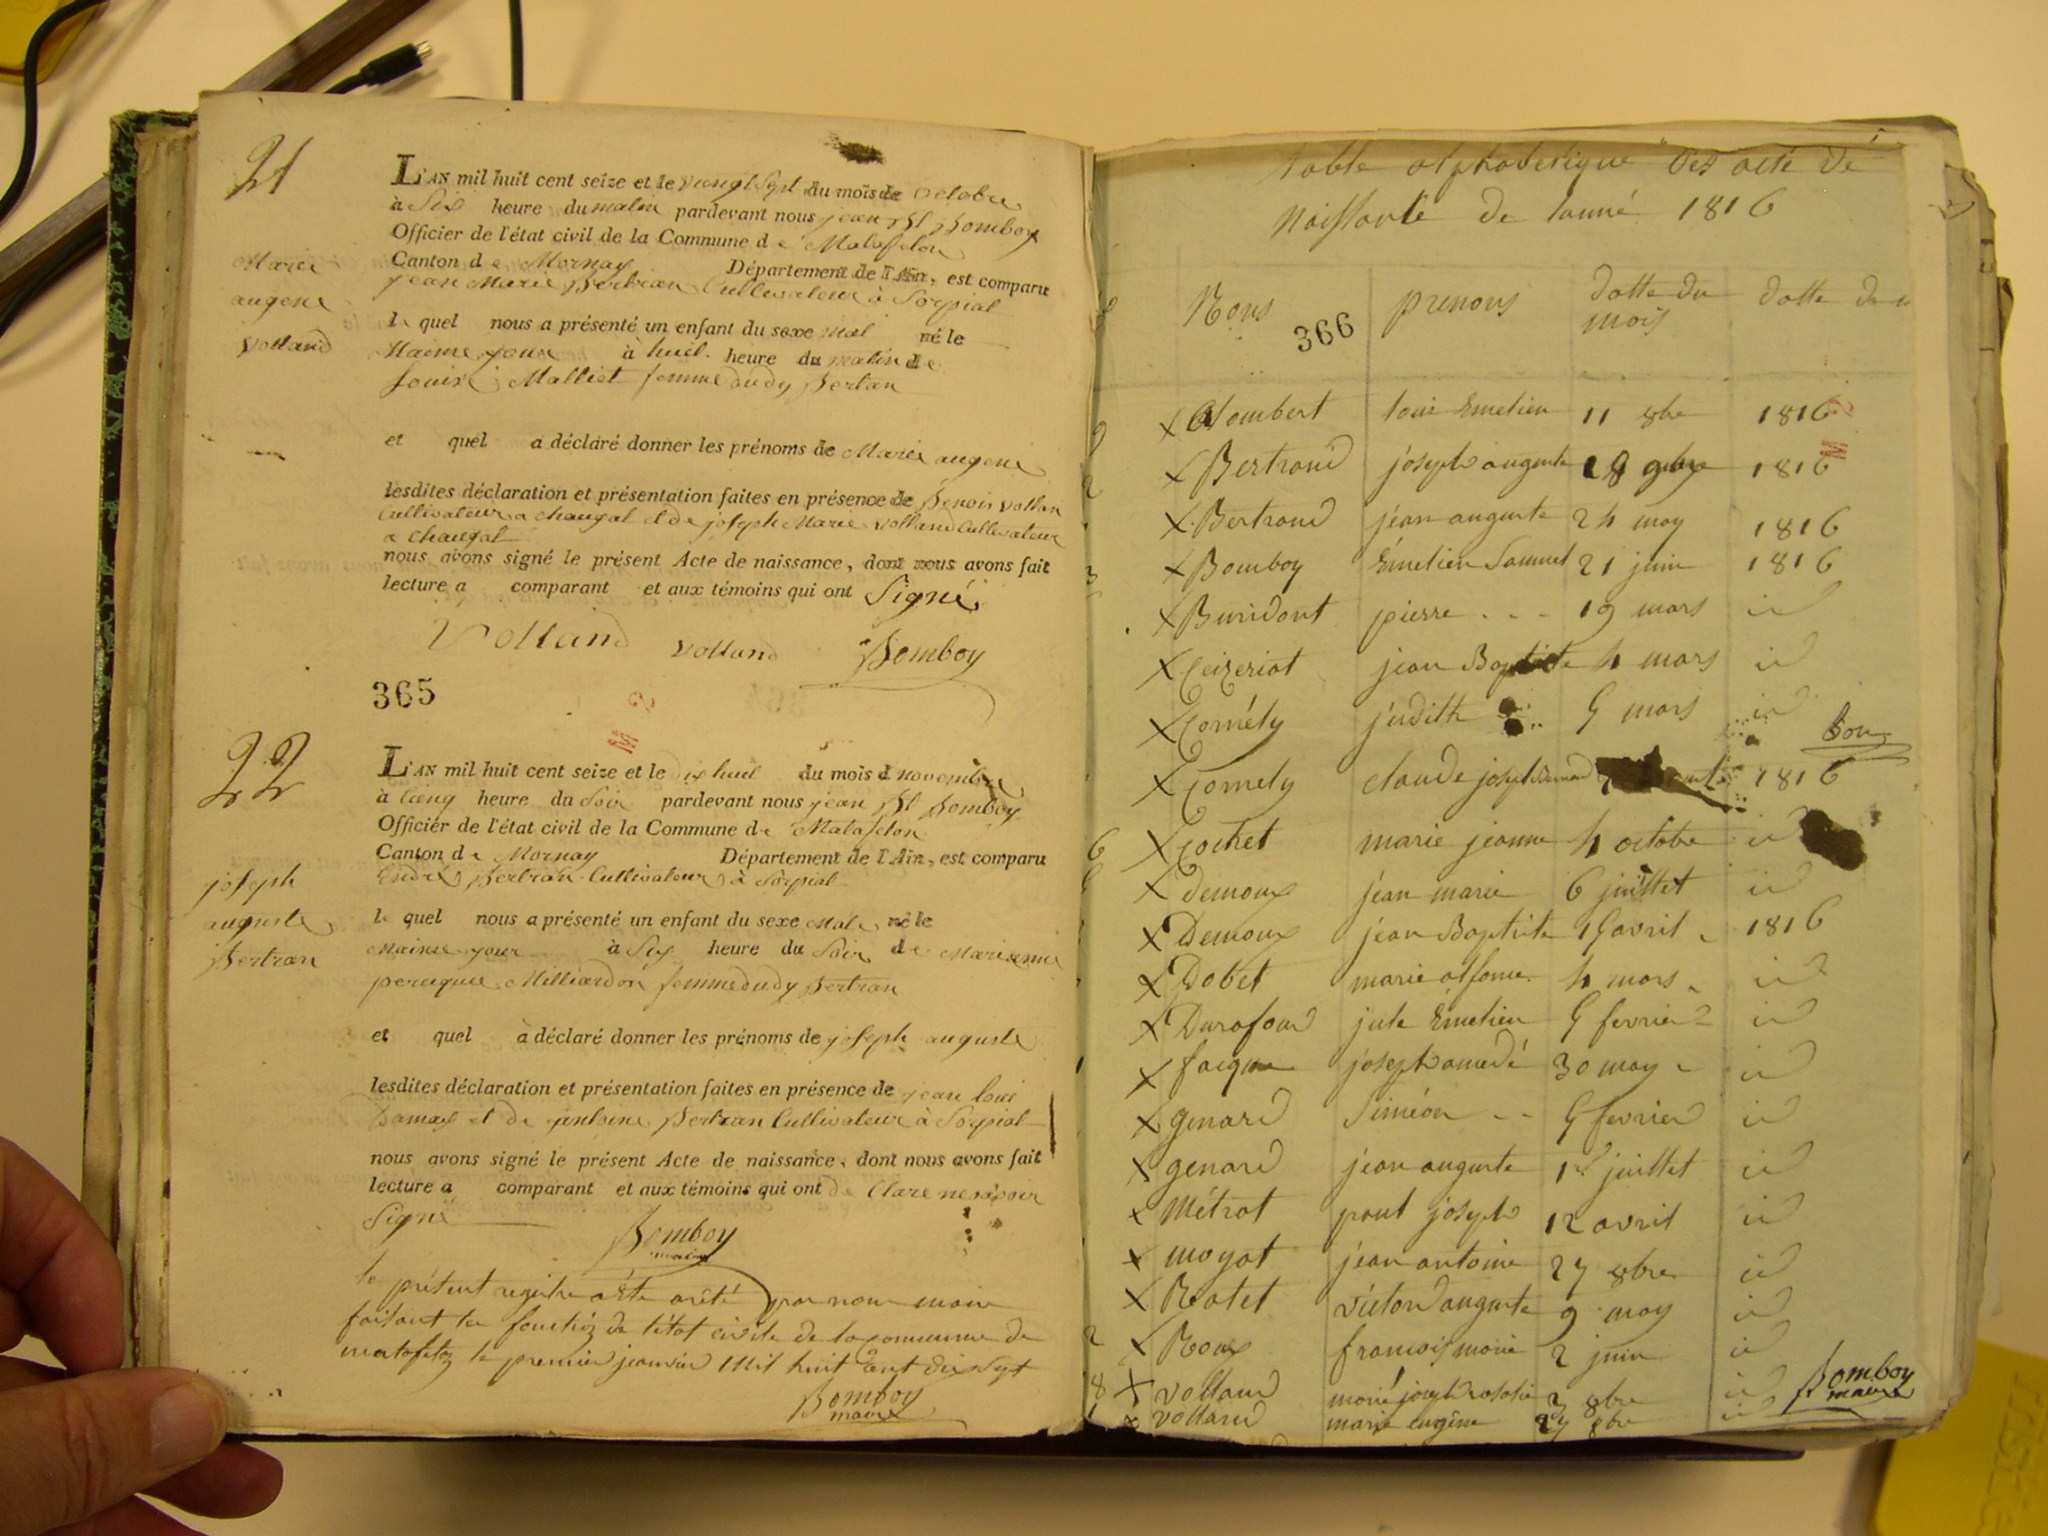 21
L'AN mil huit cent seize et le vingt Sept du mois de octobre
à Six heure du matin pardevant nous jean Bt Bomboy
Officier de l'état civil de la Commune de Matafelon
Canton de Mornay Département de l'Ain, est comparu
jean Marie Bertran Cultivateur à Sorpiat
le quel nous a présenté un enfant du sexe mal né le
Maime jour à huit heure du matin de
Louise Malliet femme dudy Bertan
et quel a déclaré donner les prénoms de Marie augene
lesdites déclaration et présentation faites en présence de Benoit Vollan
Cultivateur a Chaugat et de joseph Marie Volland Cultivateur
a Chaugat
nous avons signé le présent Acte de naissance, dont nous avons fait
lecture a comparant et aux témoins qui ont Signé
Marie
augene
Volland
Volland Volland Bomboy
365
M 2
22
L'AN mil huit cent seize et le dix huit du mois d novembre
à Cienq heure du Soir pardevant nous jean Bt Bomboy
Officier de l'état civil de la Commune de Matafelon
Canton de Mornay Département de l'Ain, est comparu
Endre Bertran Cultivateur à Sorpiat
le quel nous a présenté un enfant du sexe Male né le
Maime jour à Six heure du Soir de
Milliardon femme dudy Bertran
et quel à déclaré donner les prénoms de joseph auguste
lesdites déclaration et présentation faites en présence de jean Louis
Damas et de Antoine Bertran Cultivateur à Sorpiat
nous avons signé le présent Acte de naissance, dont nous avons fait
lecture a comparant et aux témoins qui ont de Clare ne savoir
Signe
joseph
auguste
Bertran
Bomboy
maire
le présent registre a été arêté par nous maire
faisant les fonction de l'état civile de la commune de
matafelon le premier jeanvier Mil huit Cent dix Sept
Bomboy
maire
table alphabetique des acte de
Naissance de l'anné 1816
Noms prenoms datte du mois datte de
366
x Alombert loui Emelien 11 8bre 1816
x Bertrand joseph auguste 18 9bre 1816
x Bertrand jean auguste 24 may 1816
x Bomboy Émelien Samuel 21 juin 1816
x Buridont pierre 19 mars id
x Ceizeriat jean Baptiste 4 mars id
x Comély judith 5 mars id
Bon
x Comely claude joseph 1816
x Cochet marie jeanne 4 octobre id
x Demoux jean marie 6 juillet id
x Demoux jean Baptiste 15 avril 1816
x Dobet marie alfonse 4 mars id
x Durafour jule Emelien 5 fevrier id
x joseph amedé 30 may id
x genard Siméon 5 fevrier id
x genard jean auguste 1er juillet id
x Métrat paul joseph 12 avril id
x moyat jean antoine 27 8bre id
x Ratet victor auguste 9 may id
x Roux francois marie 2 juin id
x volland marie joseph rosalie 3 8bre id
x volland marie eugène 27 8bre id
Bomboy
maire